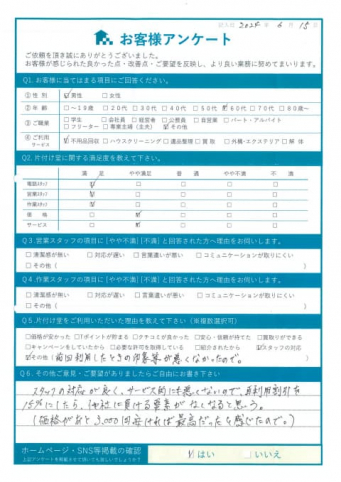 記入日 2024 年 6 月 15 日
お客様アンケート
ご依頼を頂き誠にありがとうございました。
お客様が感じられた良かった点・改善点・ご要望を反映し、より良い業務に努めてまいります。
Q1.お客様に当てはまる項目にご回答ください。
①性別 ☑男性 □女性
②年齢 □~19歳 □20代 □30代 □40代 □50代 ☑60代 □70代 □80歳~
③ご職業 □学生 □会社員 □経営者 □公務員 □自営業 □パート・アルバイト
□フリーター □専業主婦（主夫） ☑その他
④ご利用サービス ☑不用品回収 □ハウスクリーニング □遺品整理 □買取 □外構・エクステリア □解体
Q2.片付け堂に関する満足度を教えて下さい。
満足 やや満足 普通 やや不満 不満
電話スタッフ ☑ □ □ □ □
営業スタッフ ☑ □ □ □ □
作業スタッフ ☑ □ □ □ □
価格 □ ☑ □ □ □
サービス □ ☑ □ □ □
Q3.営業スタッフの項目に[やや不満][不満]と回答された方へ理由をお伺いします。
□清潔感が無い □対応が遅い □言葉遣いが悪い □コミュニケーションが取りにくい
□その他（ ）
Q4.作業スタッフの項目に[やや不満][不満]と回答された方へ理由をお伺いします。
□清潔感が無い □対応が遅い □言葉遣いが悪い □コミュニケーションが取りにくい
□その他（ ）
Q5.片付け堂をご利用いただいた理由を教えて下さい（※複数選択可）
□価格が安かった □Tポイントが貯まる □クチコミが良かった □安心・信頼が持てた □買取りができる
□キャンペーンをしていたから □必要な許可を取得している □紹介されたから ☑スタッフの対応
☑その他（前回利用したときの印象が悪くなかったので。）
Q6.その他ご意見・ご要望がありましたらご自由にお書き下さい
スタッフの対応が良く、サービス的にも悪くないので、再利用割引を
15%にしたら、他社に負ける要素がなくなると思う。
(価格があと3,000円安ければ最高だったと感じたので。)
ホームページ・SNS等掲載の確認
上記アンケートを掲載させて頂いても宜しいでしょうか？
☑はい □いいえ